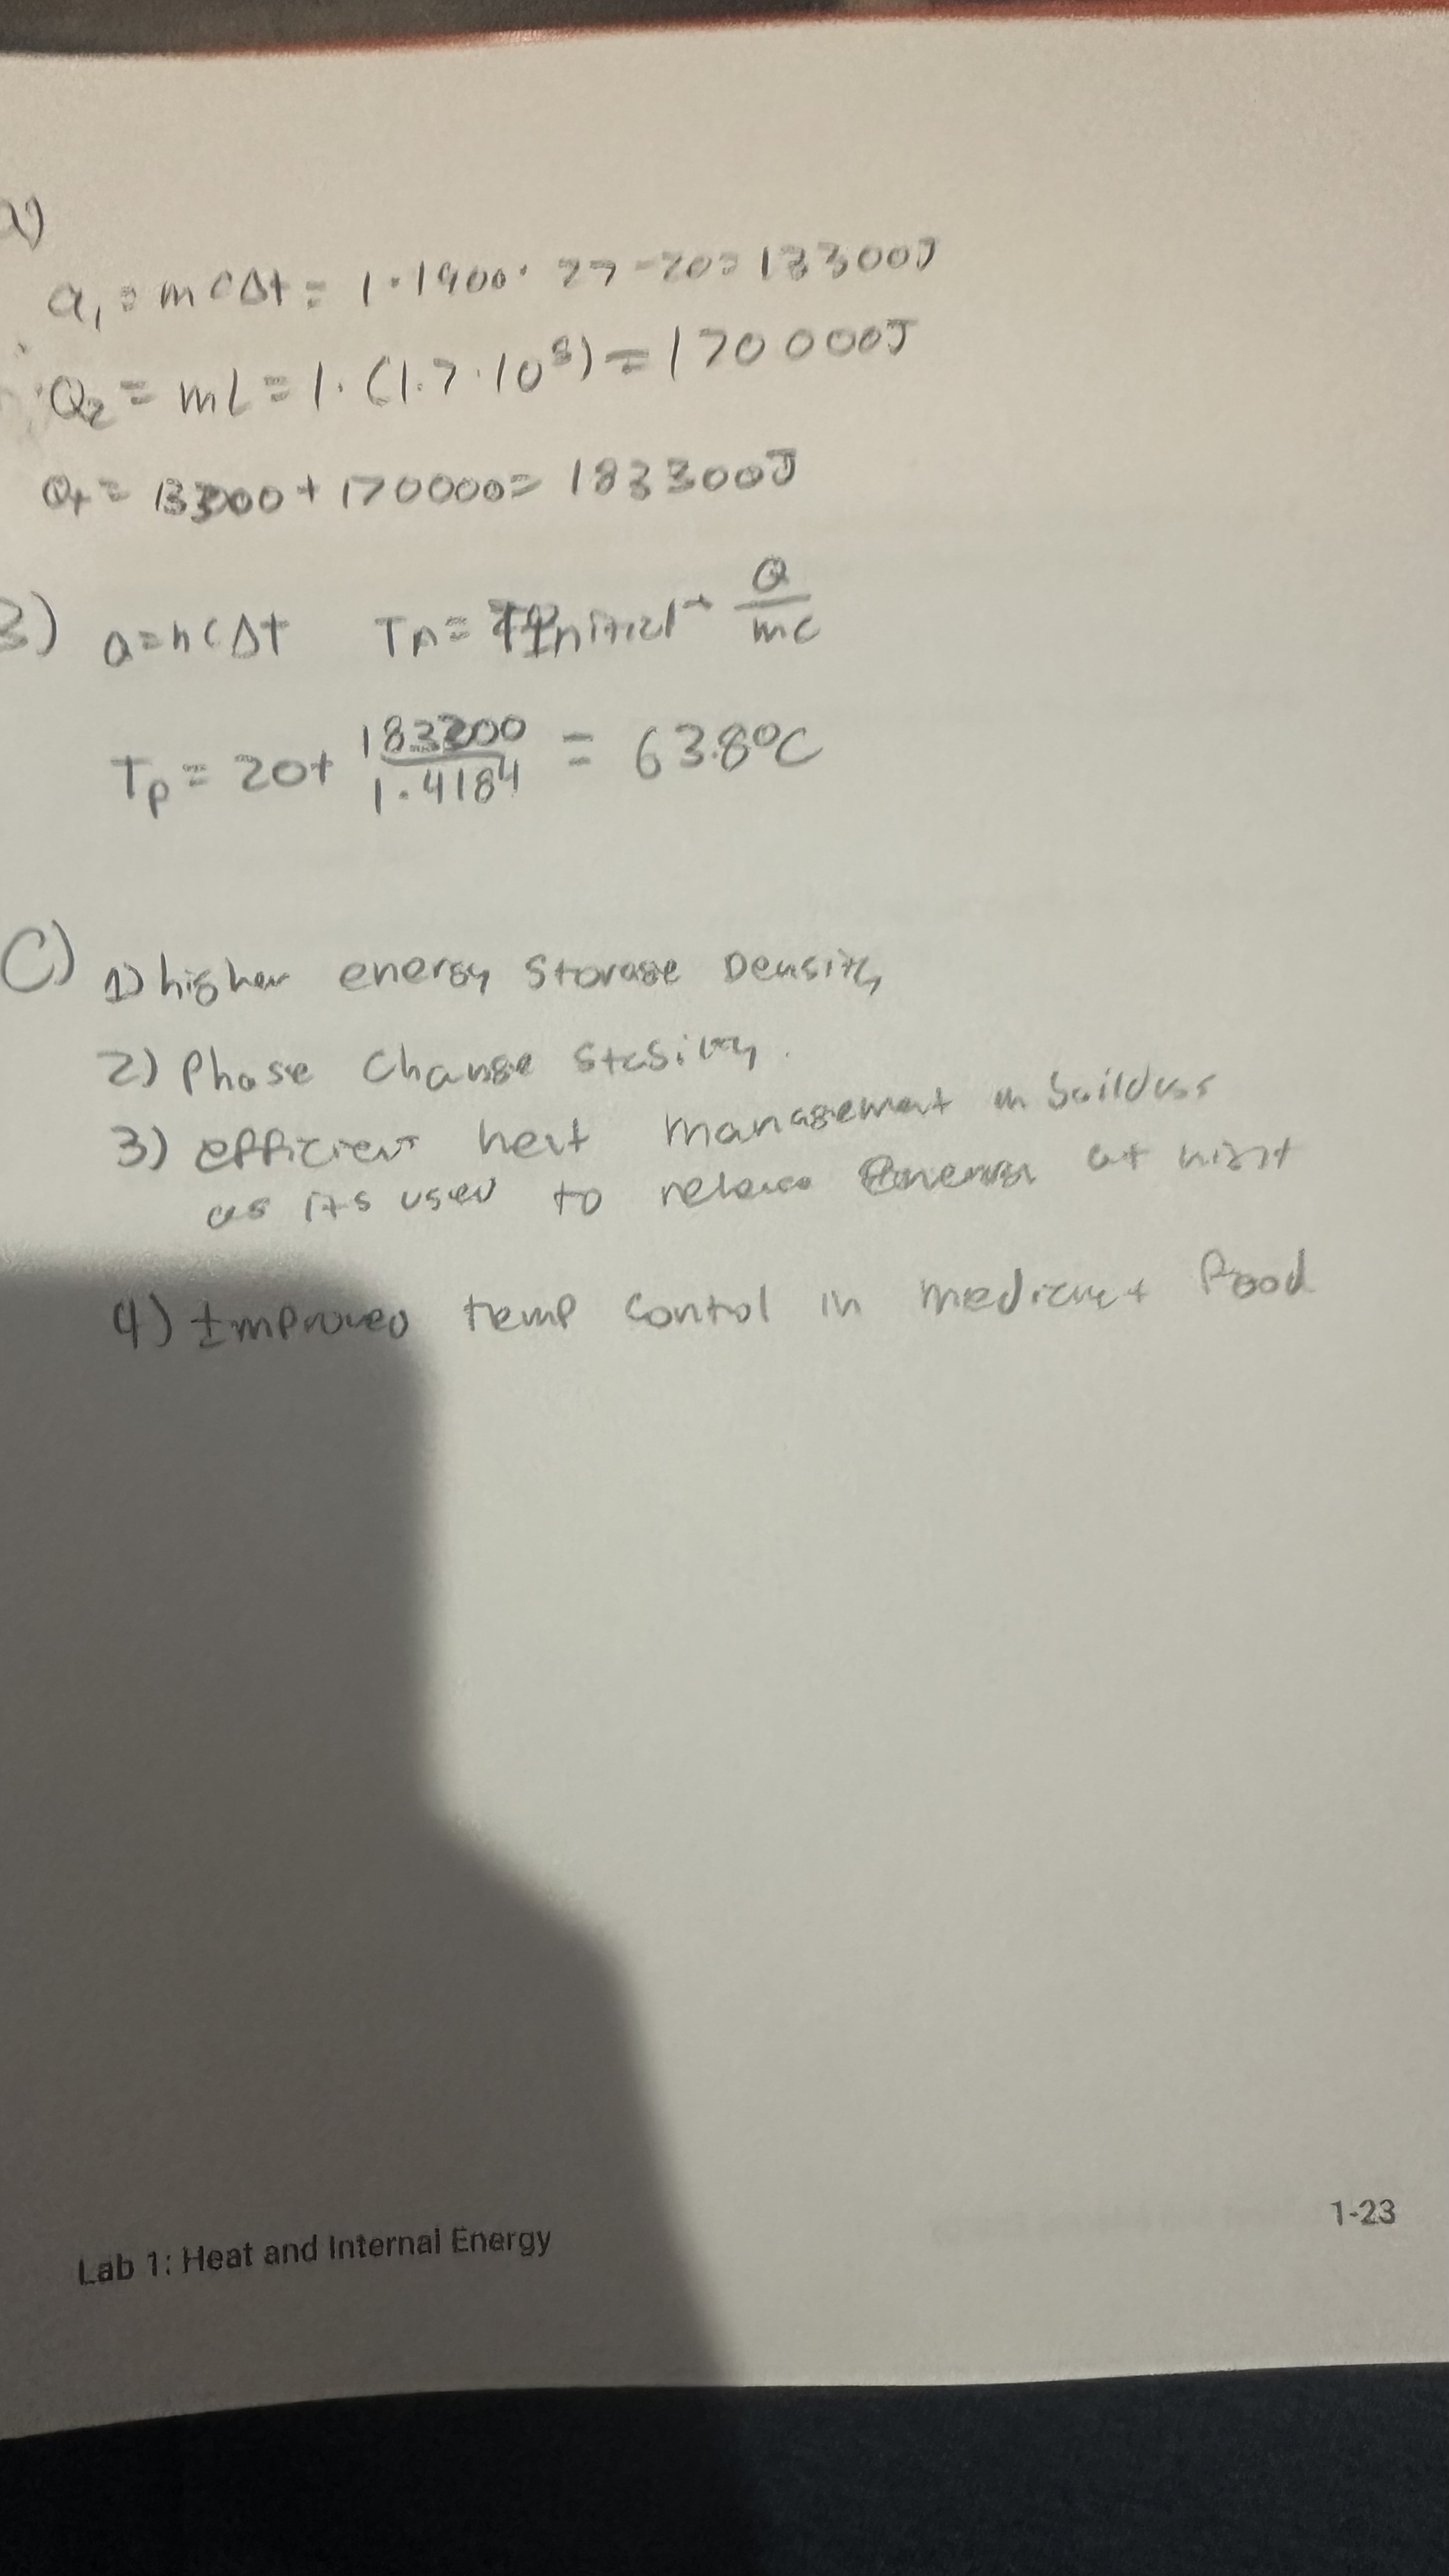 Q₁ = mcΔt = 1·1900· 27-20= 13300J
Q₂ = mL = 1·(1.7·10⁵) = 170000J
Qt = 13300 + 170000= 183300J
B) Q=mcΔt Tf= Tinitial + Q/mc
Tf = 20+ 183300/1·4184 = 63.8°C
C) 1) higher energy storage Density
2) Phase Change
3) efficient heat management in
as its used to release energy at night
4) Improved temp control in food
Lab 1: Heat and Internal Energy
1-23